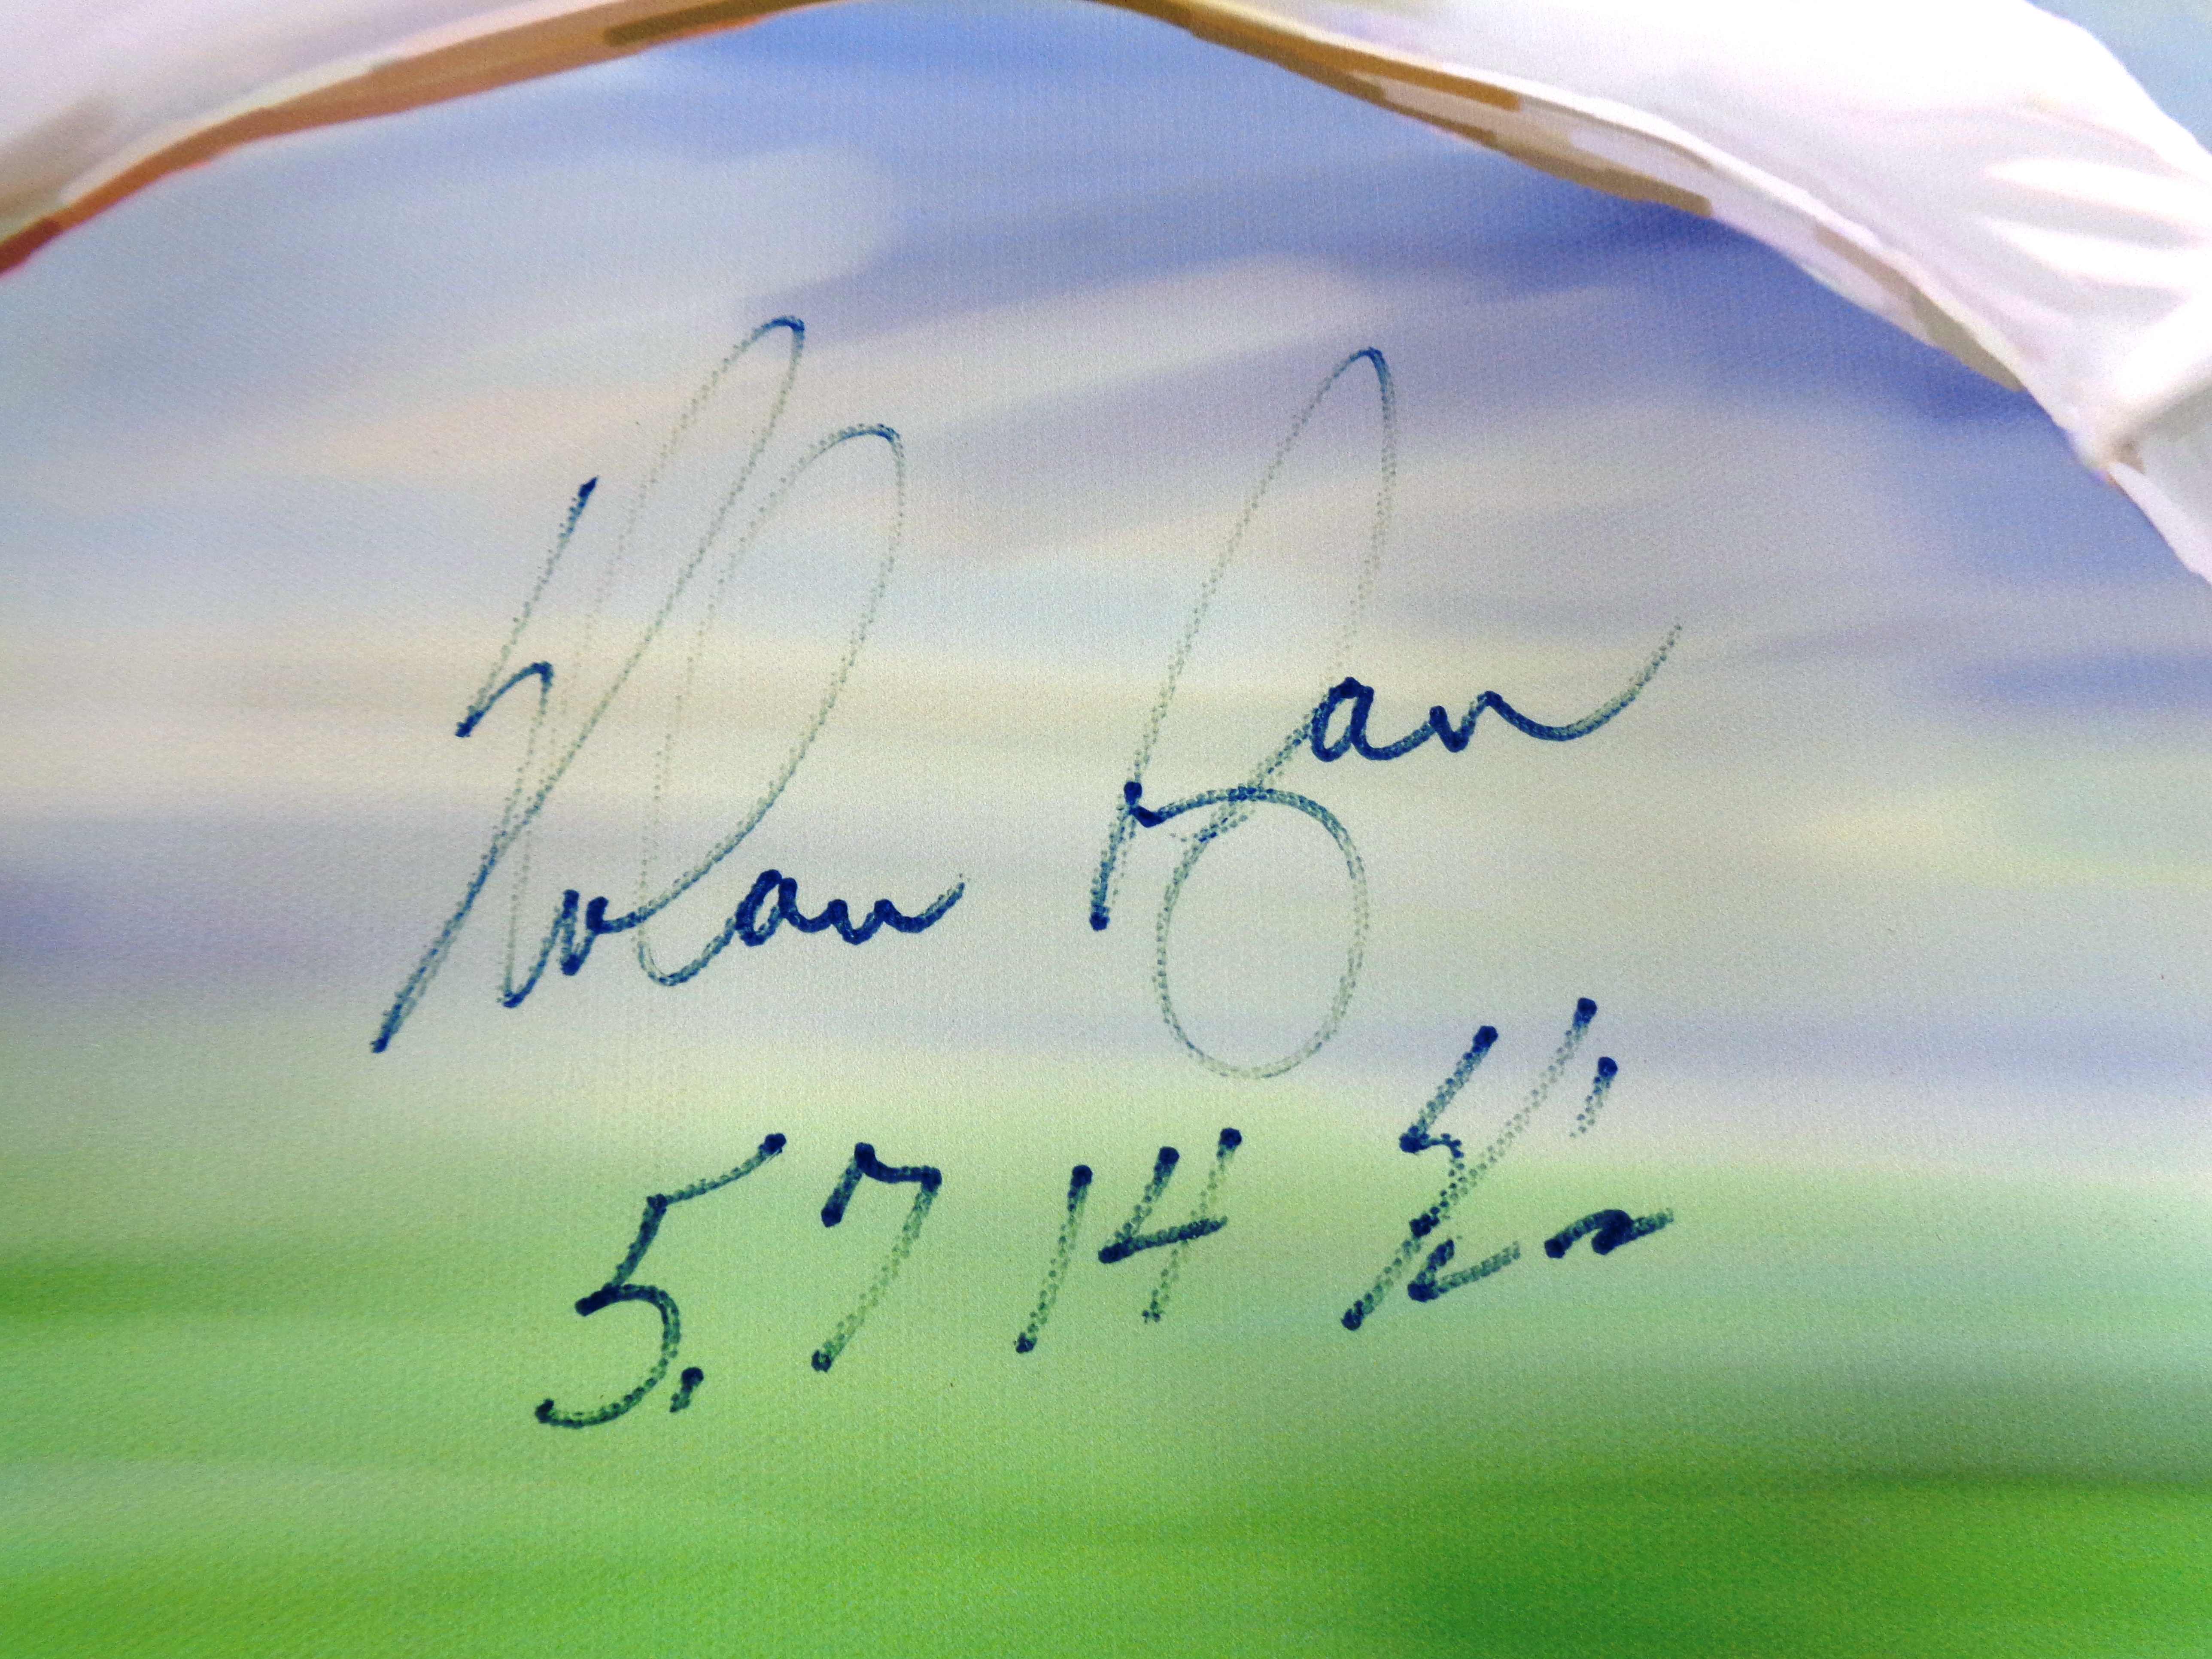 Nolan Ryan
5,714 K's